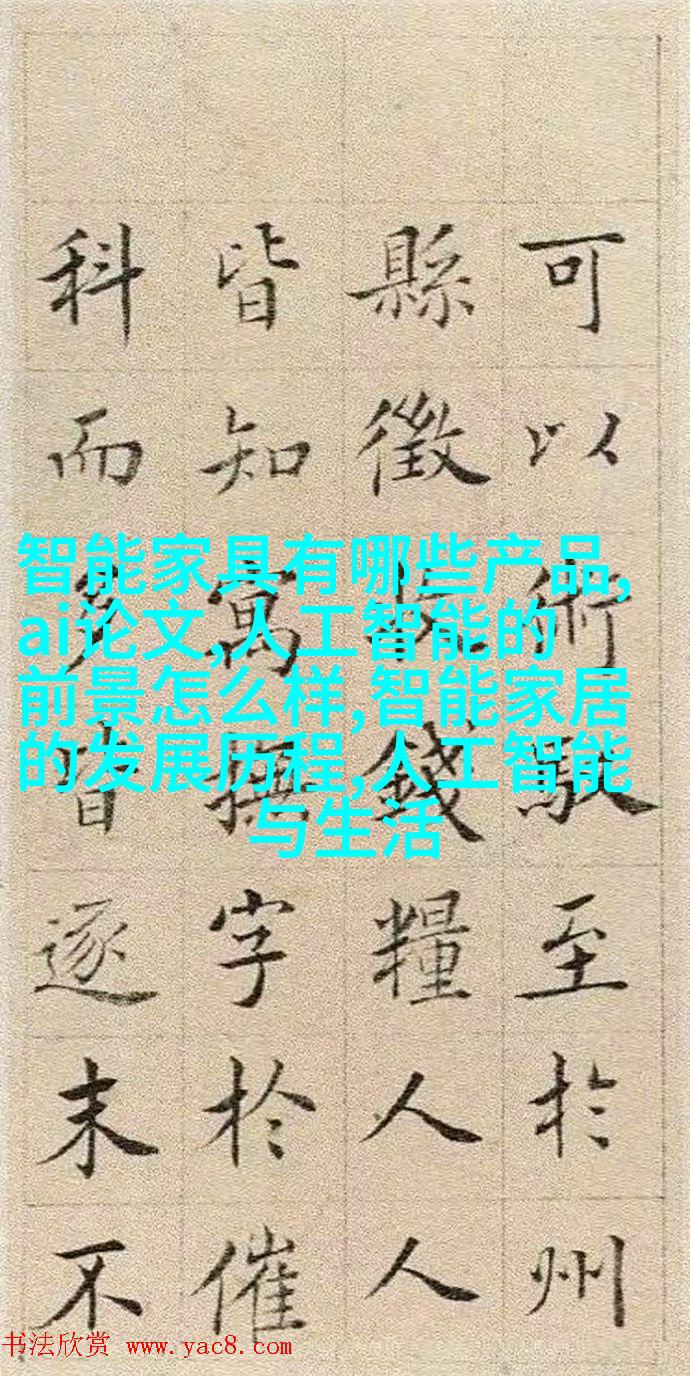 可以術馭至於州
縣徵錢糧人人
皆知寓撫字於催
科而逐末不
智能家具有哪些产品,
ai论文,人工智能的
前景怎么样,智能家居
的发展历程,人工智能
与生活
书法欣赏 www.yac8.com